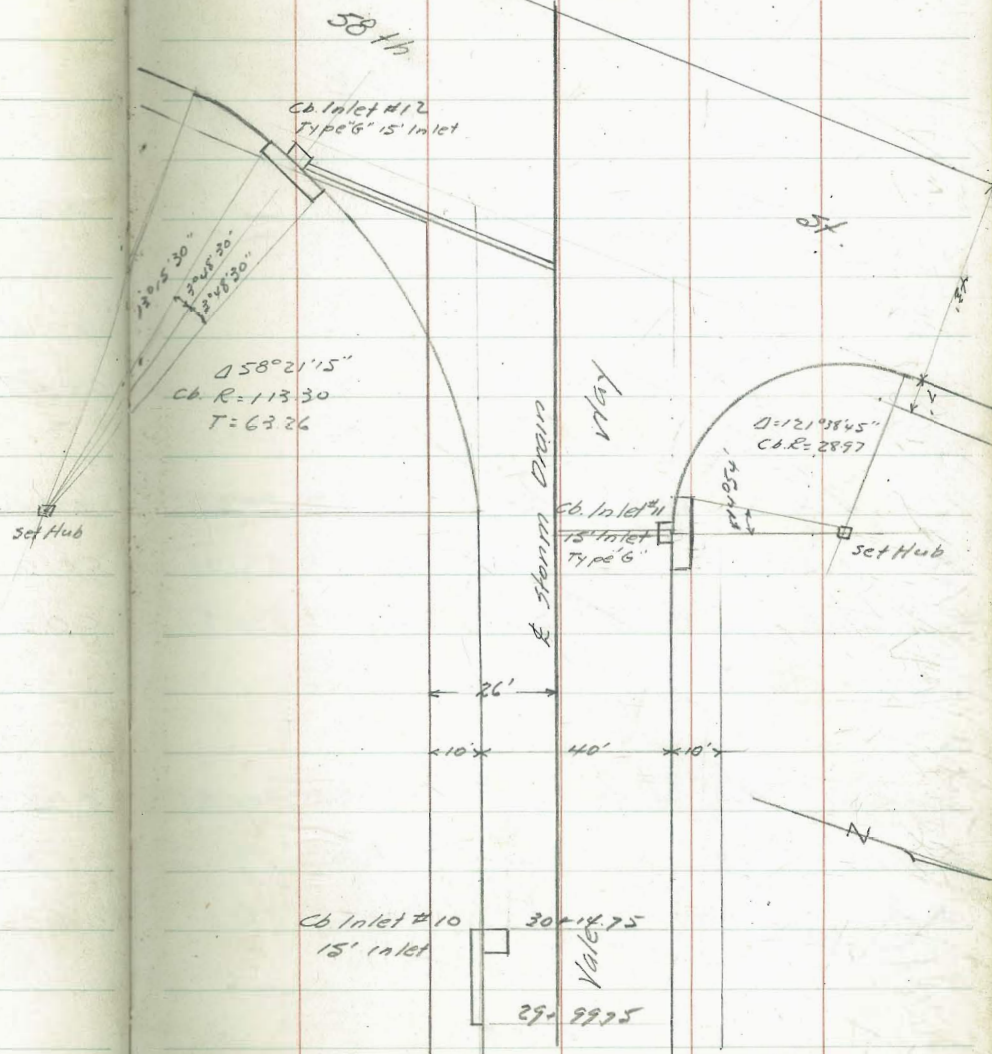 58th
Cb. Inlet #12
Type "G" 15' Inlet
St.
13°15'30"
3°48'30"
3°48'30"
Δ 58°21'15"
Cb. R = 113.30
T = 63.26
Set Hub
℄ Storm Drain
Way
Δ=121°38'45"
Cb.R=28.97
Cb. Inlet #11
15' Inlet
Type "G"
Set Hub
26'
10'
40'
10'
N
Cb Inlet #10
15' inlet
30+14.75
Vale
29+99.75